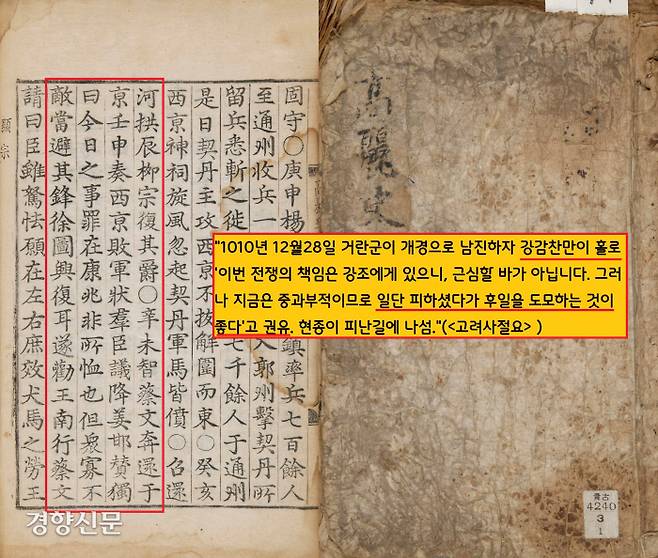 固守〇庚申楊
鎮率兵七百餘人
至通州收兵一
入郭州擊契丹所
留兵悉斬之徙
七千餘人于通州
是日契丹主攻西京不拔解圍而東〇癸亥
西京神祠旋風忽起契丹軍馬皆僨〇召還
河拱辰柳宗復其爵〇辛未智蔡文奔還于
京壬申奏西京敗軍狀羣臣議降姜邯贊獨
曰今日之事罪在康兆非所恤也但衆寡不
敵當避其鋒徐圖興復耳遂勸王南行蔡文
請曰臣雖駑怯願在左右庶效犬馬之勞王
顯宗
高麗史
"1010년 12월28일 거란군이 개경으로 남진하자 강감찬만이 홀로
'이번 전쟁의 책임은 강조에게 있으니, 근심할 바가 아닙니다. 그러
나 지금은 중과부적이므로 일단 피하셨다가 후일을 도모하는 것이
좋다'고 권유. 현종이 피난길에 나섬."(<고려사절요> )
貴古
4240
3
1
경향신문